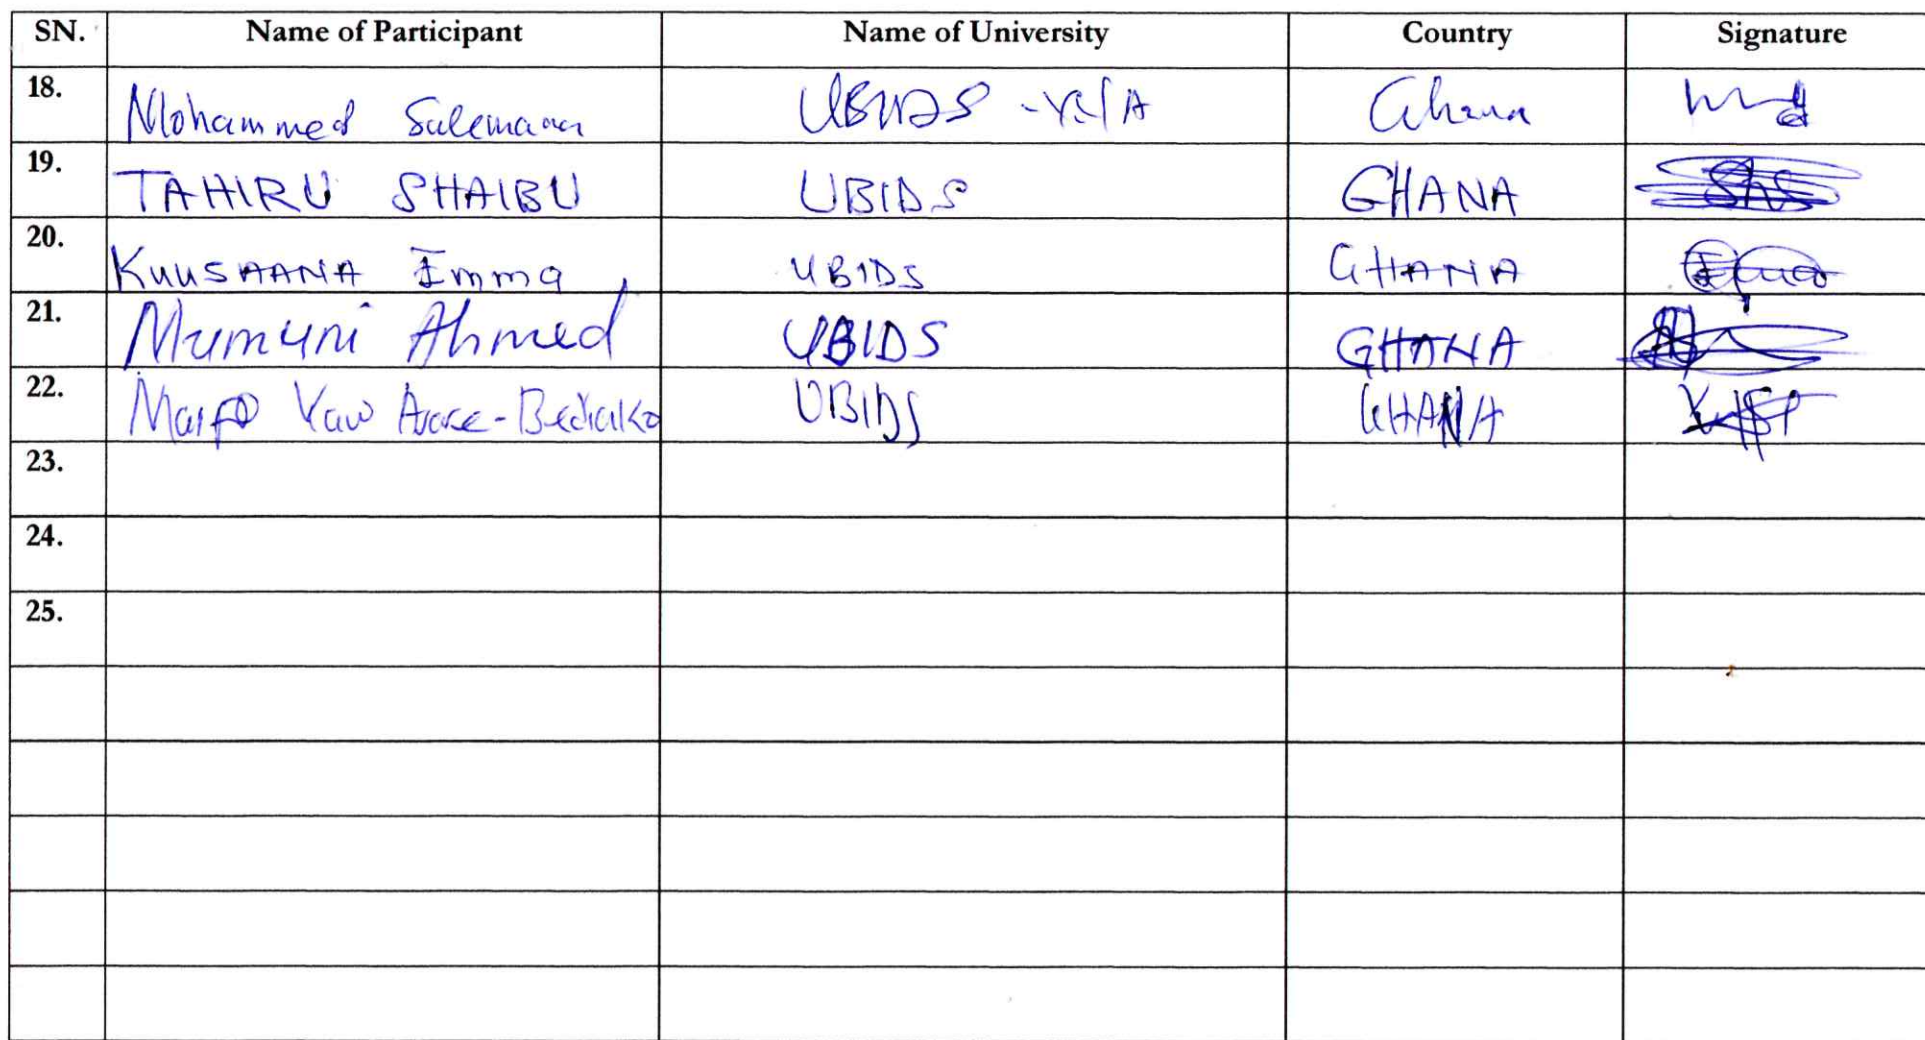 SN. Name of Participant Name of University Country Signature
18. Mohammed Salemana UBIDS Ghana
19. TAHIRU SHAIBU UBIDS GHANA
20. KUUSAANA Emma UBIDS GHANA
21. Mumuni Ahmed UBIDS GHANA
22. Yaw UBIDS GHANA
23.
24.
25.